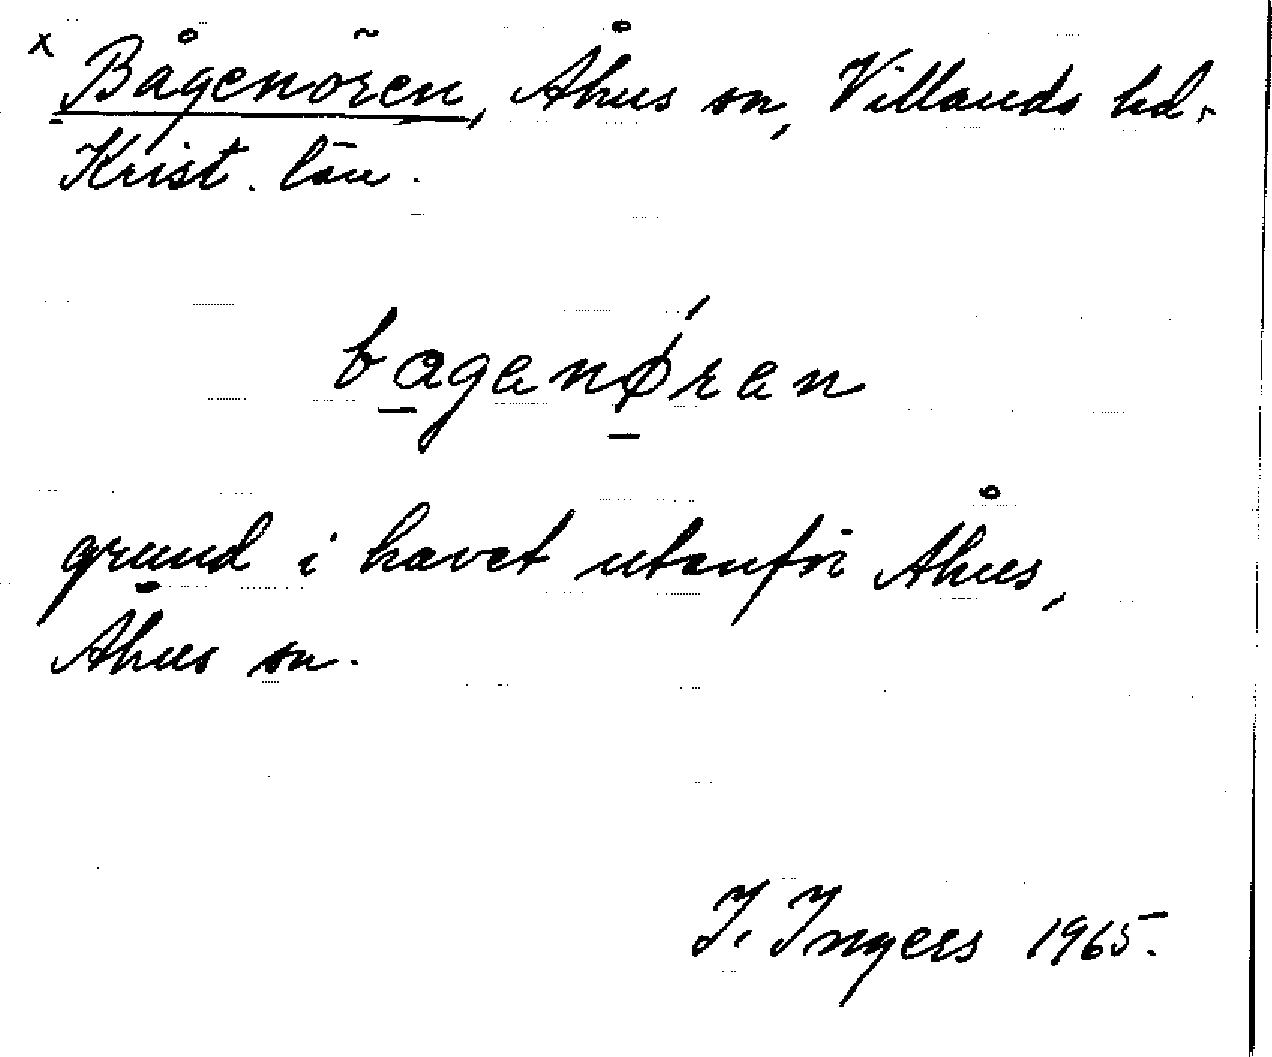 x Bågenören, Åhus sn, Villands hd.
Krist. län.
bagenǿran
grund i havet utanför Åhus,
Åhus sn.
I. Ingers 1965.